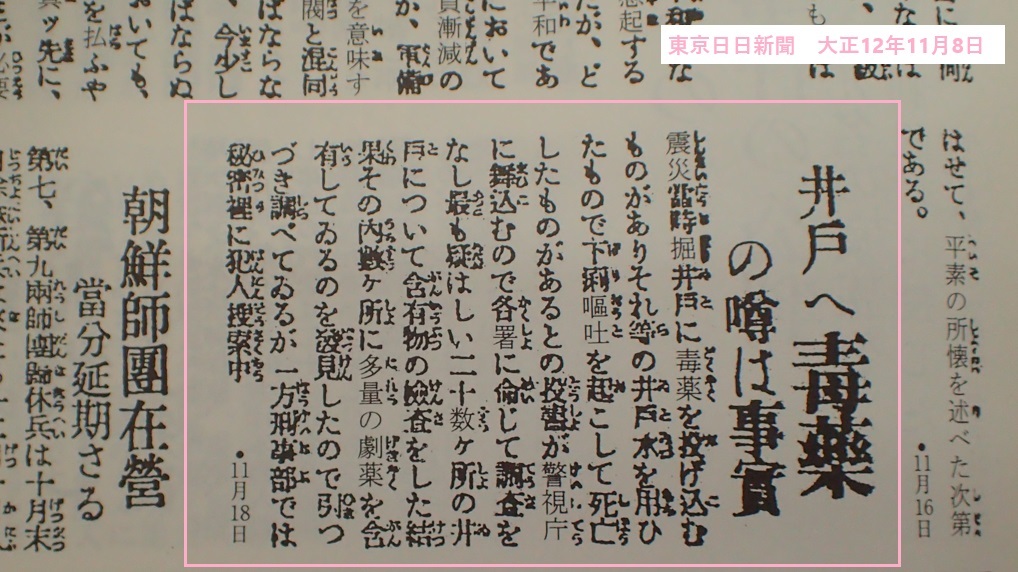 東京日日新聞　大正12年11月8日
和な
想起する
たが、ど
平和であ
において
員漸減の
か、軍備
を意味す
閥と混同
ばならな
、今少し
ばならぬ
おいても、
を払ふや
ッ先に、
はせて、平素の所懐を述べた次第
である。
●11月16日
井戸へ毒薬
の噂は事實
震災當時掘井戸に毒薬を投げ込む
ものがありそれ等の井戸水を用ひ
たもので下痢嘔吐を起こして死亡
したものがあるとの投書が警視庁
に舞込むので各署に命じて調査を
なし最も疑はしい二十数ヶ所の井
戸について含有物の檢査をした結
果その内數ヶ所に多量の劇薬を含
有してゐるのを發見したので引つ
づき調べてゐるが一方刑事部では
秘密裡に犯人捜索中
●11月18日
朝鮮師團在營
當分延期さる
第七、第九兩師團歸休兵は十月末